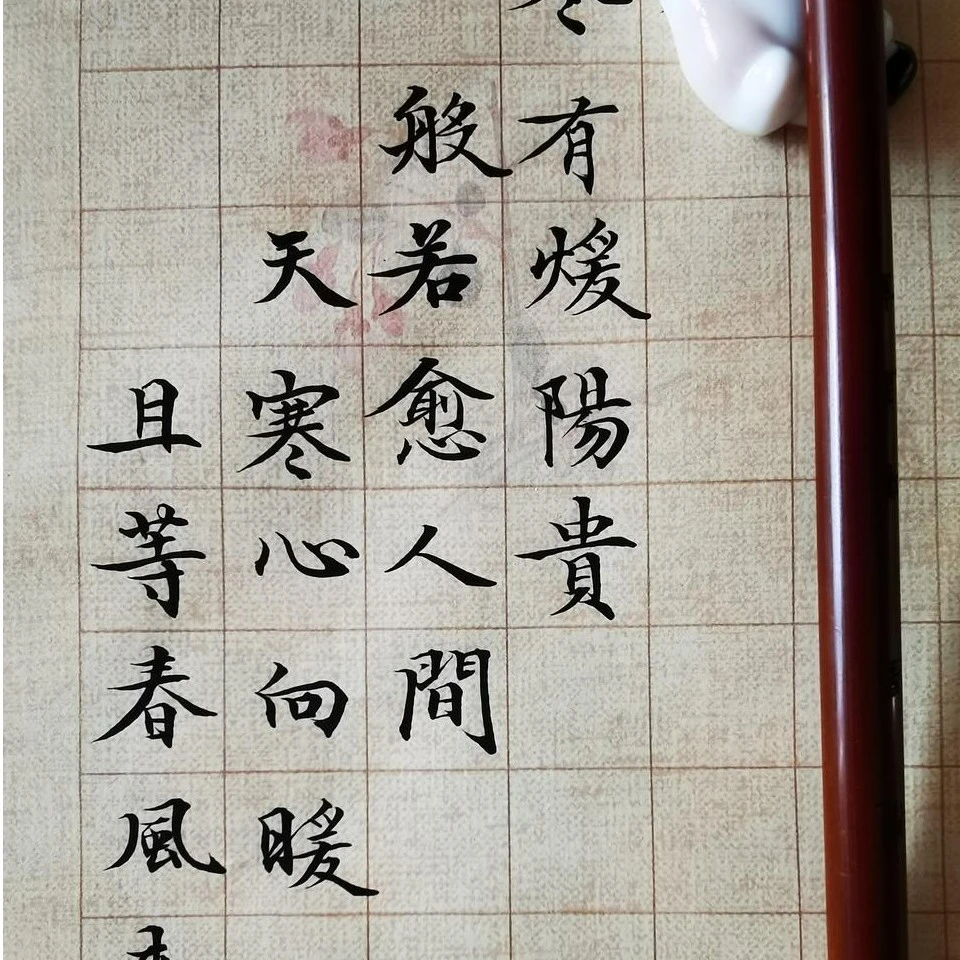 有煖陽貴
般若愈人間
天寒心向暖
且等春風